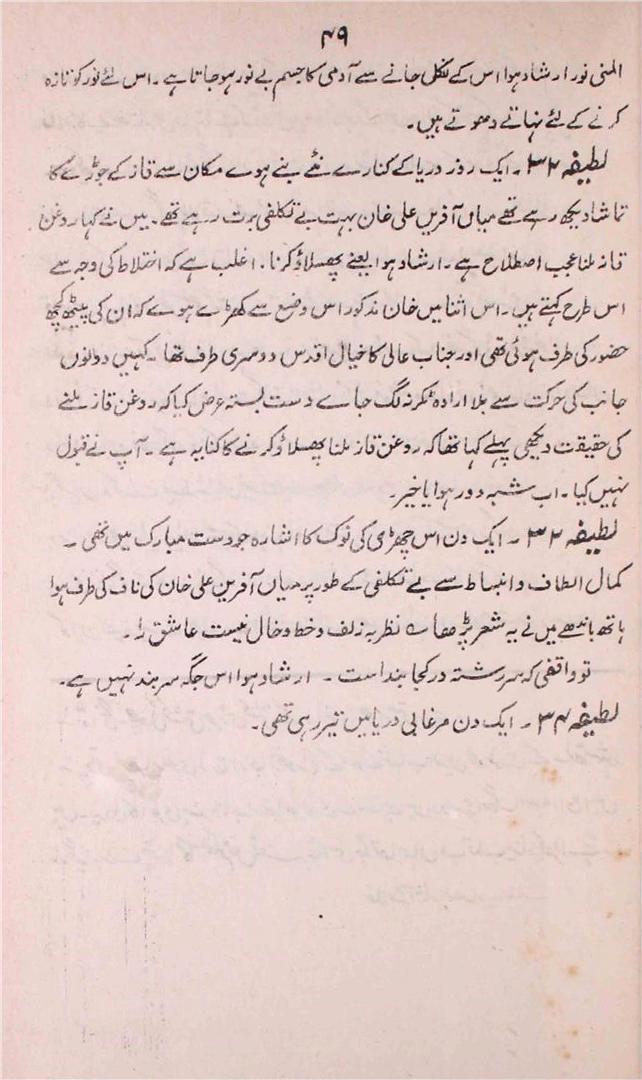 ۴۹
المنی نور ارشاد ہوا اس کے نکل جانے سے آدمی کا جسم بے نور ہو جاتا ہے۔ اس لئے نور کو تازہ
کرنے کے لئے نہاتے دھوتے ہیں۔
لطیفہ ۳۲۔ ایک روز دریا کے کنارے نئے بنے ہوے مکان سے قاز کے جوڑے کا
تماشا دیکھ رہے تھے میاں آفریں علی خان بہت بے تکلفی برت رہے تھے۔ میں نے کہا روغن
قاز ملنا عجب اصطلاح ہے۔ ارشاد ہوا یعنے پھسلاؤ کرنا۔ اغلب ہے کہ اختلاط کی وجہ سے
اس طرح کہتے ہیں۔ اس اثنا میں خان مذکور اس وضع سے کھڑے ہوے کہ ان کی پیٹھ کچھ
حضور کی طرف ہوئی تھی اور جناب عالی کا خیال اقدس دوسری طرف تھا۔ کہیں دونوں
جانب کی حرکت سے بلا ارادہ ٹکر نہ لگ جاے دست بستہ عرض کیا کہ روغن قاز ملنے
کی حقیقت دیکھی پہلے کہا تھا کہ روغن قاز ملنا پھسلاؤ کرنے کا کنایہ ہے۔ آپ نے قبول
نہیں کیا۔ اب شبہ دور ہوا یا خیر۔
لطیفہ ۳۲۔ ایک دن اس چھڑی کی نوک کا اشارہ جو دست مبارک میں تھی۔
کمال الطاف و انبساط سے بے تکلفی کے طور پر میاں آفریں علی خان کی ناف کی طرف ہوا
ہاتھ باندھے میں نے یہ شعر پڑھا نظر بہ زلف و خط و خال نیست عاشق را۔
تو واقفی کہ سر رشتہ در کجا بند است۔ ارشاد ہوا اس جگہ سر بند نہیں ہے۔
لطیفہ ۳۴۔ ایک دن مرغابی دریا میں تیر رہی تھی۔